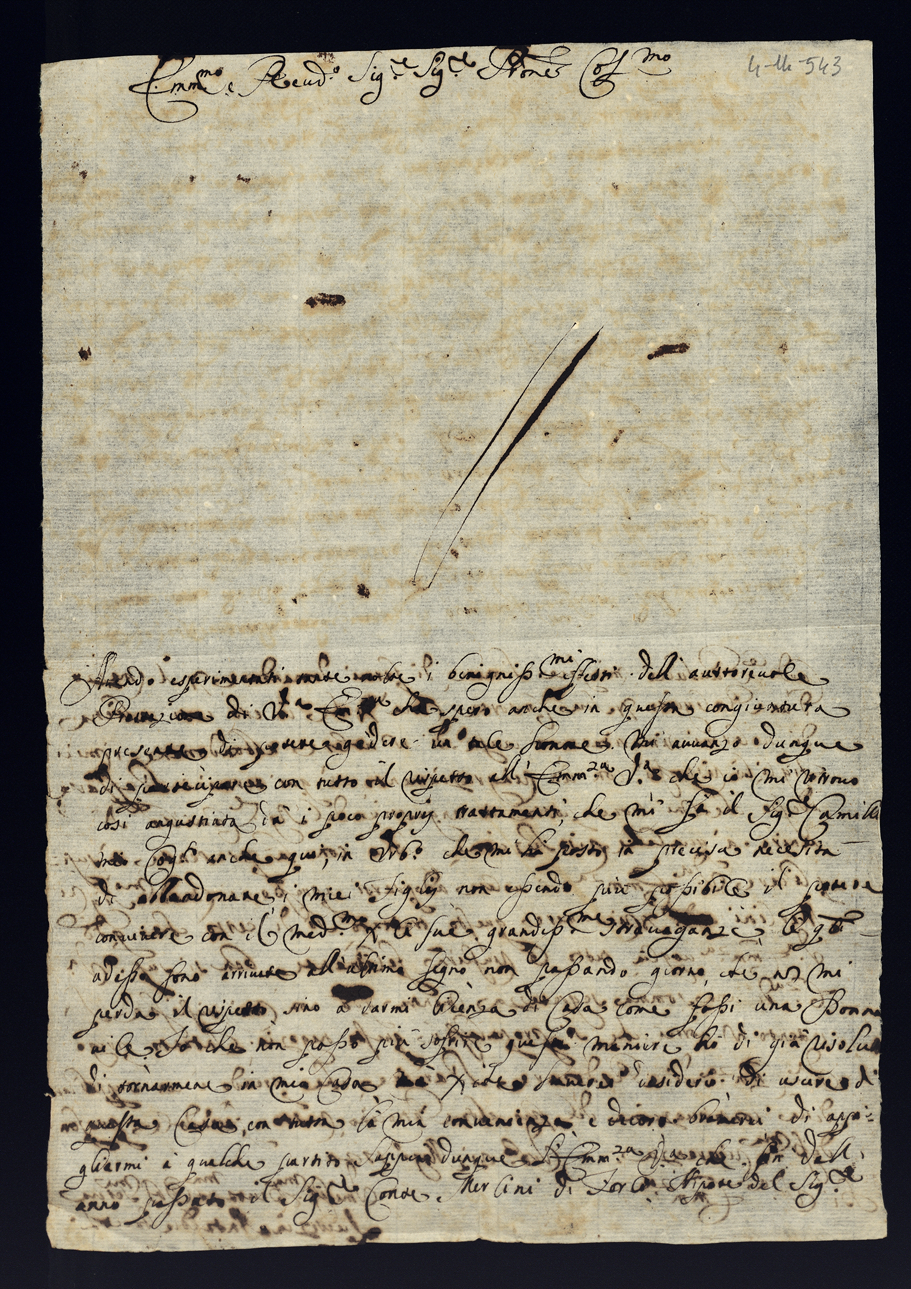 Emm.mo e Reud.o Sig.re Sig.re Prone Col.mo
4-16-543
Auendo esperimentati molte uolte i benigniss.mi effetti dell auttoreuole
Protezione di V.ra Em.za spero anche in questa congiontura
presente di potere godere un tale fauore mi auuanzo dunque
di partecipare con tutto il rispetto all' Emm.za V.a che io mi ritrouo
così angustiata da i poco proprij trattamenti che mi fà il Sig.re Camillo
mio Cog.to anche quì in Vrb.o che mi hà posto in precisa necessita
di abbandonare i miei figlij non essendo più possibile il potere
conuiuere con il med.mo p le sue grandiss.me strauaganze le q.li
adesso sono arriuate all ultimo segno non passando giorno che n mi
perda il rispetto sino à darmi licenza di Casa come fossi una Donna
uile, Io che non posso più soffrire queste maniere hò di già risoluto
di tornarmene in mia Casa mà desiderio di uscire di
questa Casa con tutta la mia conuenienza e decoro bramerei di appi-
gliarmi à qualche partito sappia dunque l'Emm.za V.a che fin dell'
anno passato il Sig.re Conte Merlini di Forlì Nipote del Sig.re